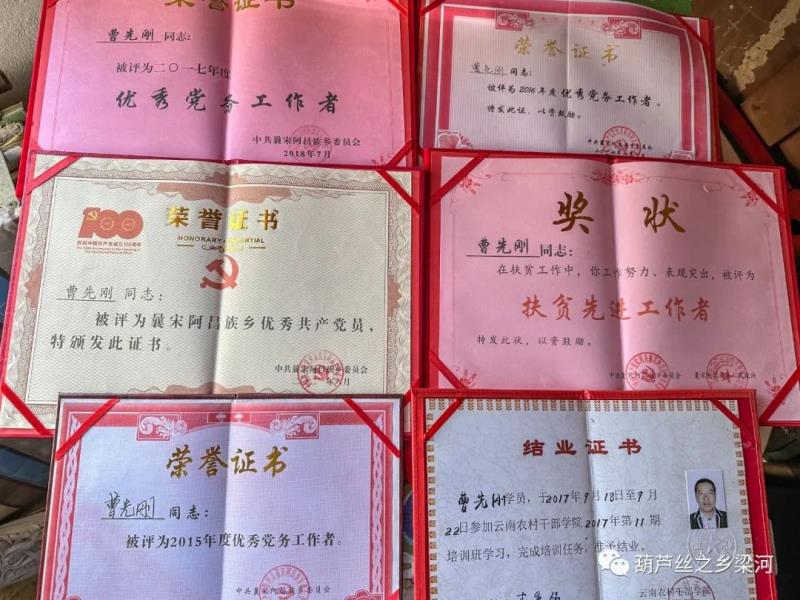 荣誉证书
曹先刚 同志：
被评为二〇一七年度
优秀党务工作者
中共曩宋阿昌族乡委员会
2018年7月
荣誉证书
曹先刚 同志：
被评为2016年度优秀党务工作者。
特发此证，以资鼓励。
中共曩宋阿昌族乡委员会
100
庆祝中国共产党成立100周年
荣誉证书
HONORARY CREDENTIAL
曹先刚 同志：
被评为曩宋阿昌族乡优秀共产党员，
特颁发此证书。
中共曩宋阿昌族乡委员会
奖状
曹先刚 同志：
在扶贫工作中，你工作努力、表现突出，被评为
扶贫先进工作者
特发此状，以资鼓励。
中共曩宋阿昌族乡委员会
荣誉证书
曹先刚 同志：
被评为2015年度优秀党务工作者。
中共曩宋阿昌族乡委员会
结业证书
曹先刚学员，于2017年9月18日至9月
22日参加云南农村干部学院2017年第11期
培训班学习，完成培训任务，准予结业。
云南农村干部学院
葫芦丝之乡梁河